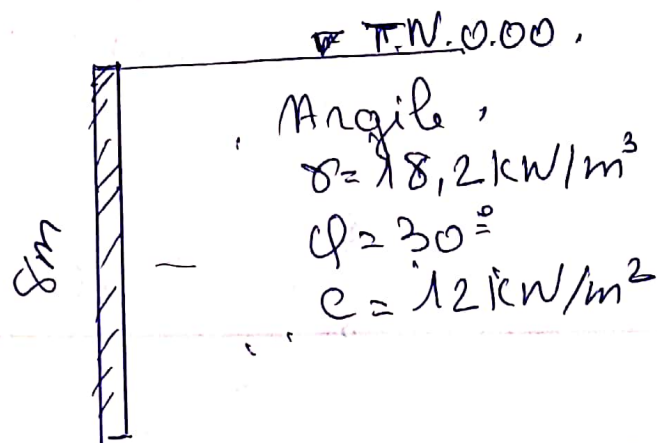 T.N. 0.00.
Argile,
γ = 18,2 kN/m³
φ = 30°
c = 12 kN/m²
8m